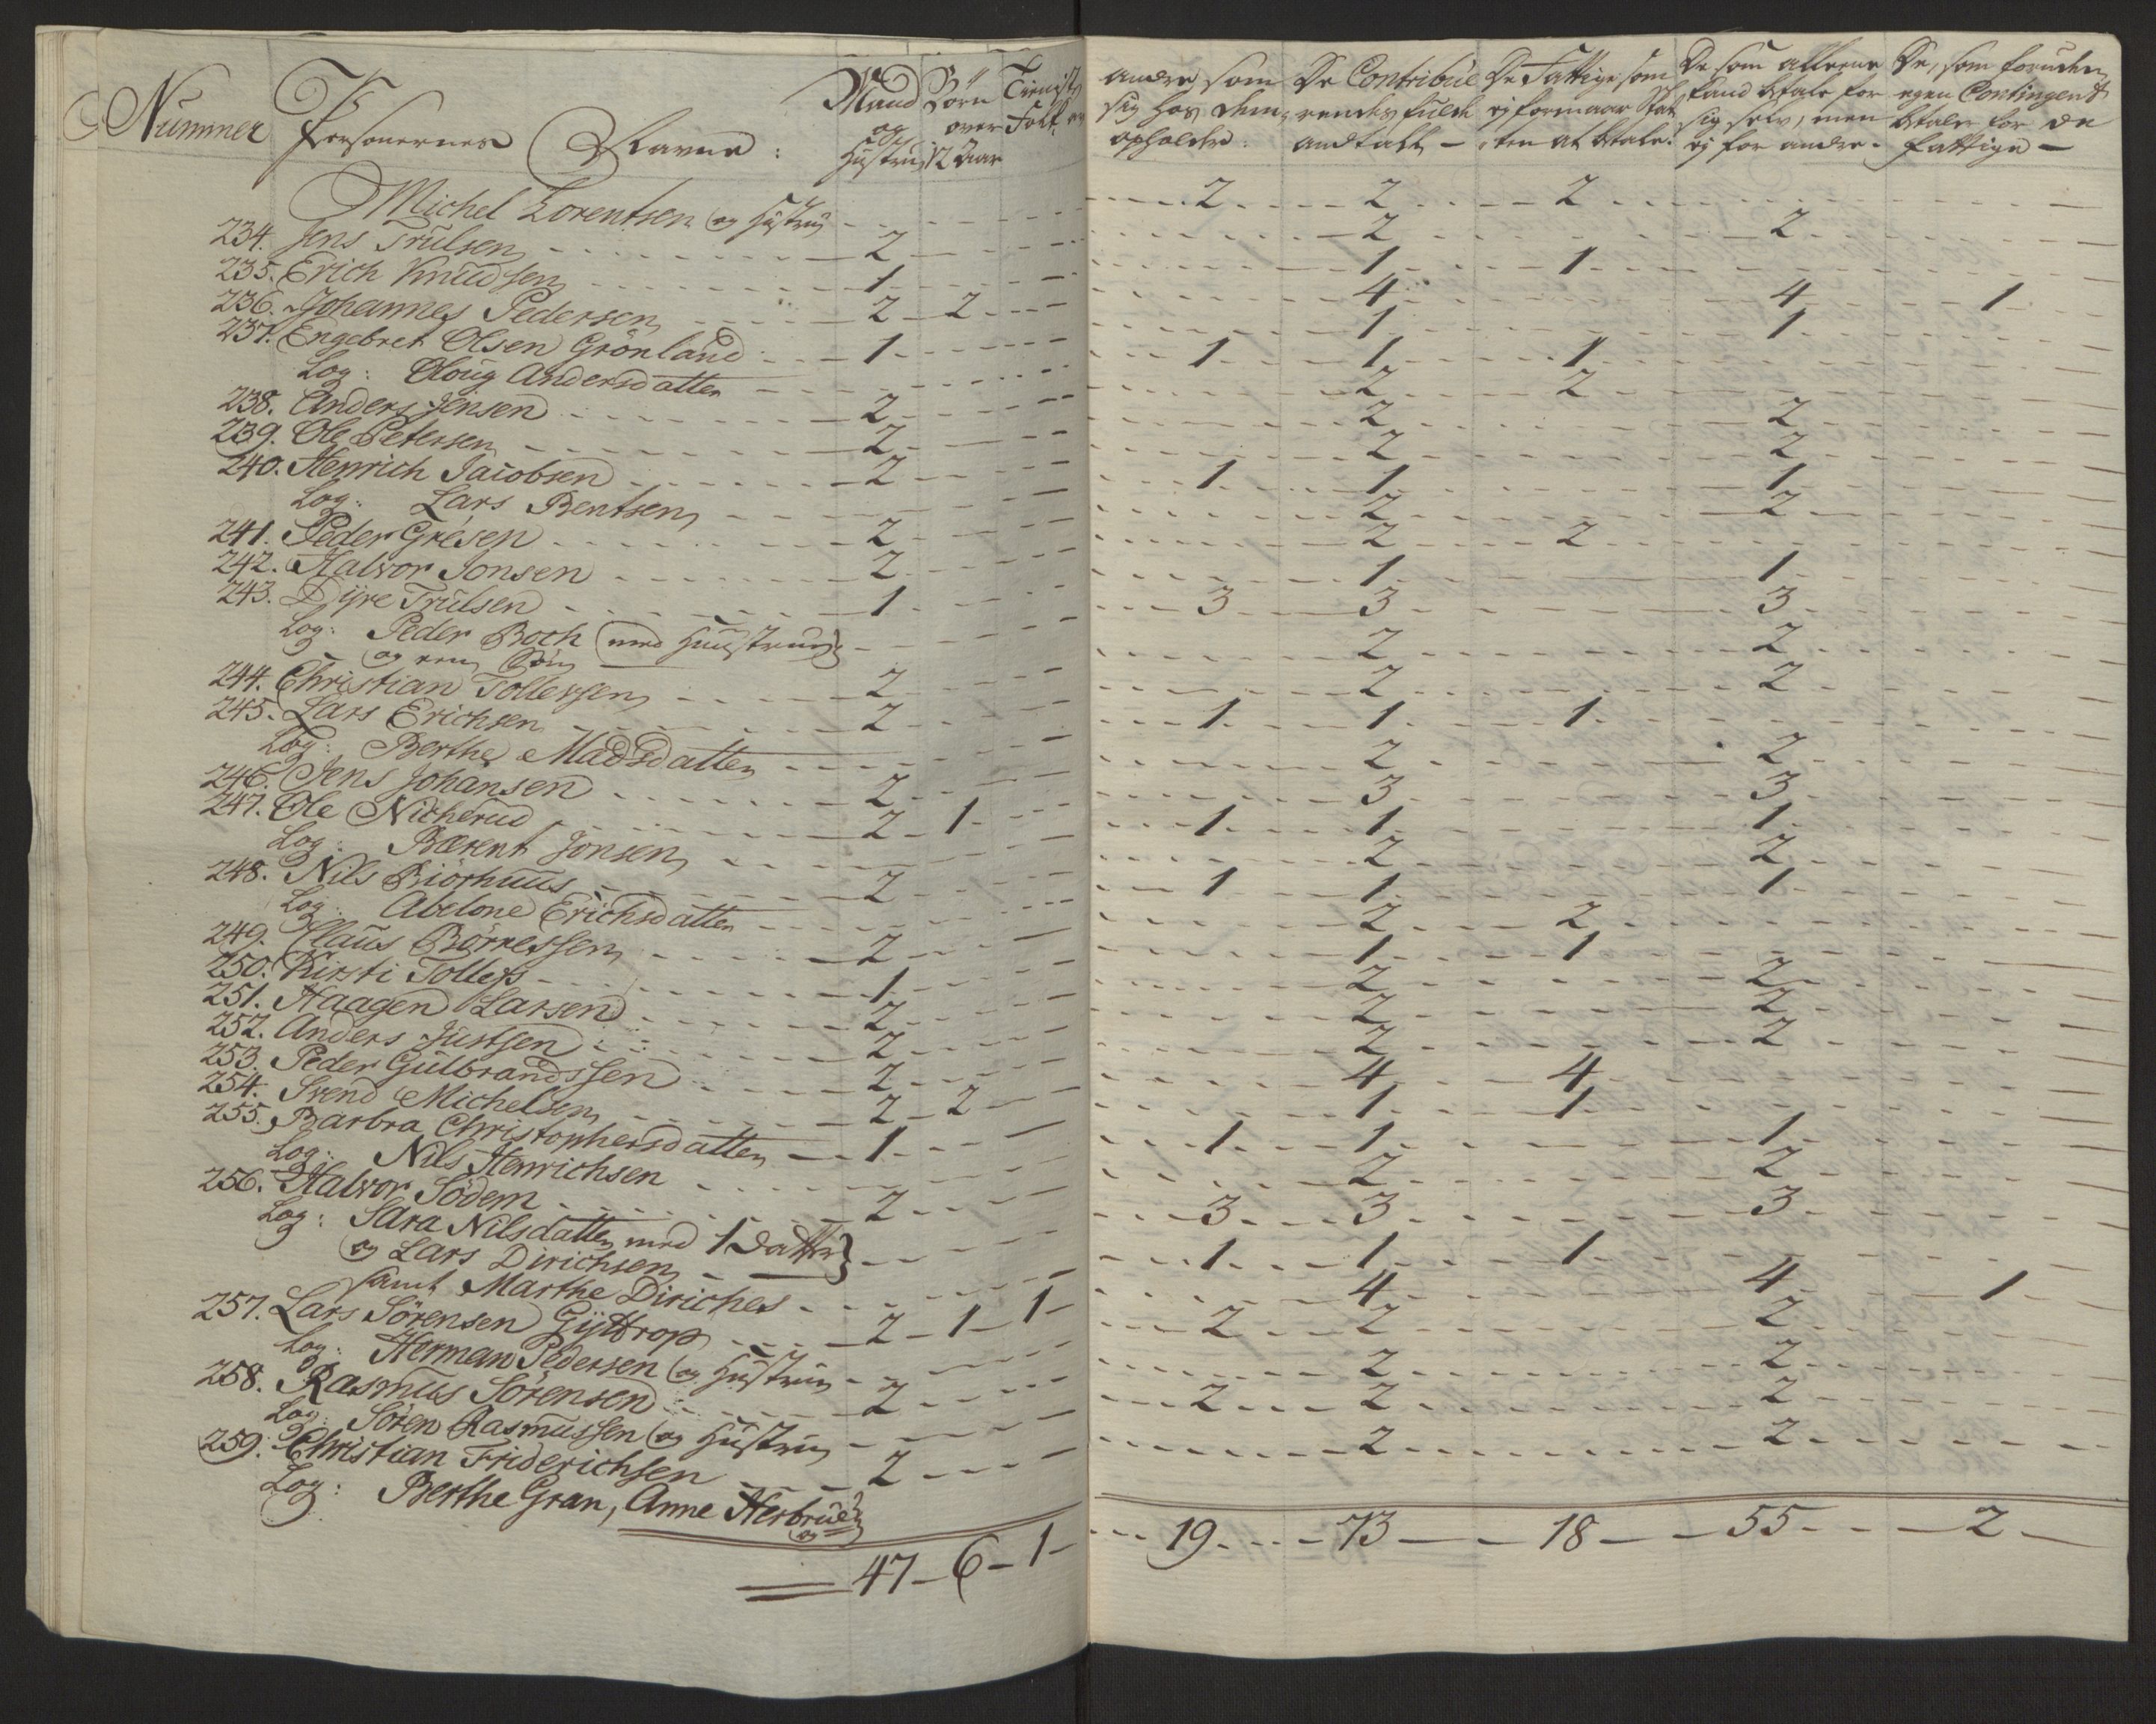 Nummer Personernes Navne: Mand og Hustru Börn over 12 Aar Tienist Folk og andre som sig hos dem opholder: De Contribue rendes fulde andtall - De Fattige som ej formaar Skat ten at betale. De som alleene kand betale for sig selv, men ej for andre. De, som foruden egen Contingent betaler for de fattige -
Michel Lorentsen og Hustru 2 2 2
234. Jens Trulsen 2 2 2
235. Erich Knudsen 1 1 1
236. Johannes Pedersen 2 2 4 4 1
237. Engebret Olsen Grönland 1 1 1
Log: Oloug Andersdatter 1 1 1
238. Anders Jensen 2 2 2
239. Ole Petersen 2 2 2
240. Henrich Jacobsen 2 2 2
Log: Lars Bentsen 1 1 1
241. Peder Gresen 2 2 2
242. Halvor Jonsen 2 2 2
243. Dÿre Trulsen 1 1 1
Log: Peder Boch med Huustrue 3 3 3
og een Sön
244. Christian Tollefsen 2 2 2
245. Lars Erichsen 2 2 2
Log: Berthe Madsdatter 1 1 1
246. Jens Johansen 2 2 2
247. Ole Nicherud 2 1 3 3
Log: Bærnt Jonsen 1 1 1
248. Nils Biörhuus 2 2 2
Log: Abelone Erichsdatter 1 1 1
249. Claus Börresen 2 2 2
250. Kirsti Tollefs 1 1 1
251. Haagen Larsen 2 2 2
252. Anders Justsen 2 2 2
253. Peder Gulbrandssen 2 2 2
254. Svend Michelsen 2 2 4 4
255. Barbra Christophersdatter 1 1 1
Log: Nils Henrichsen 1 1 1
256. Halvor Södem 2 2 2
Log: Sara Nilsdatter med 1 Datter 3 3 3
og Lars Dirichsen
samt Marthe Diriches 1 1 1
257. Lars Sörensen Gÿttrop 2 1 1 4 4 1
Log: Herman Pedersen og Hustru 2 2 2
258. Rasmus Sörensen 2 2 2
Log: Sören Rasmussen og Hustru 2 2 2
259. Christian Friderichsen 2 2 2
Log: Berthe Gran, Anne Herbrue og
47 - 6 - 1 - 19 - 73 - 18 - 55 - 2